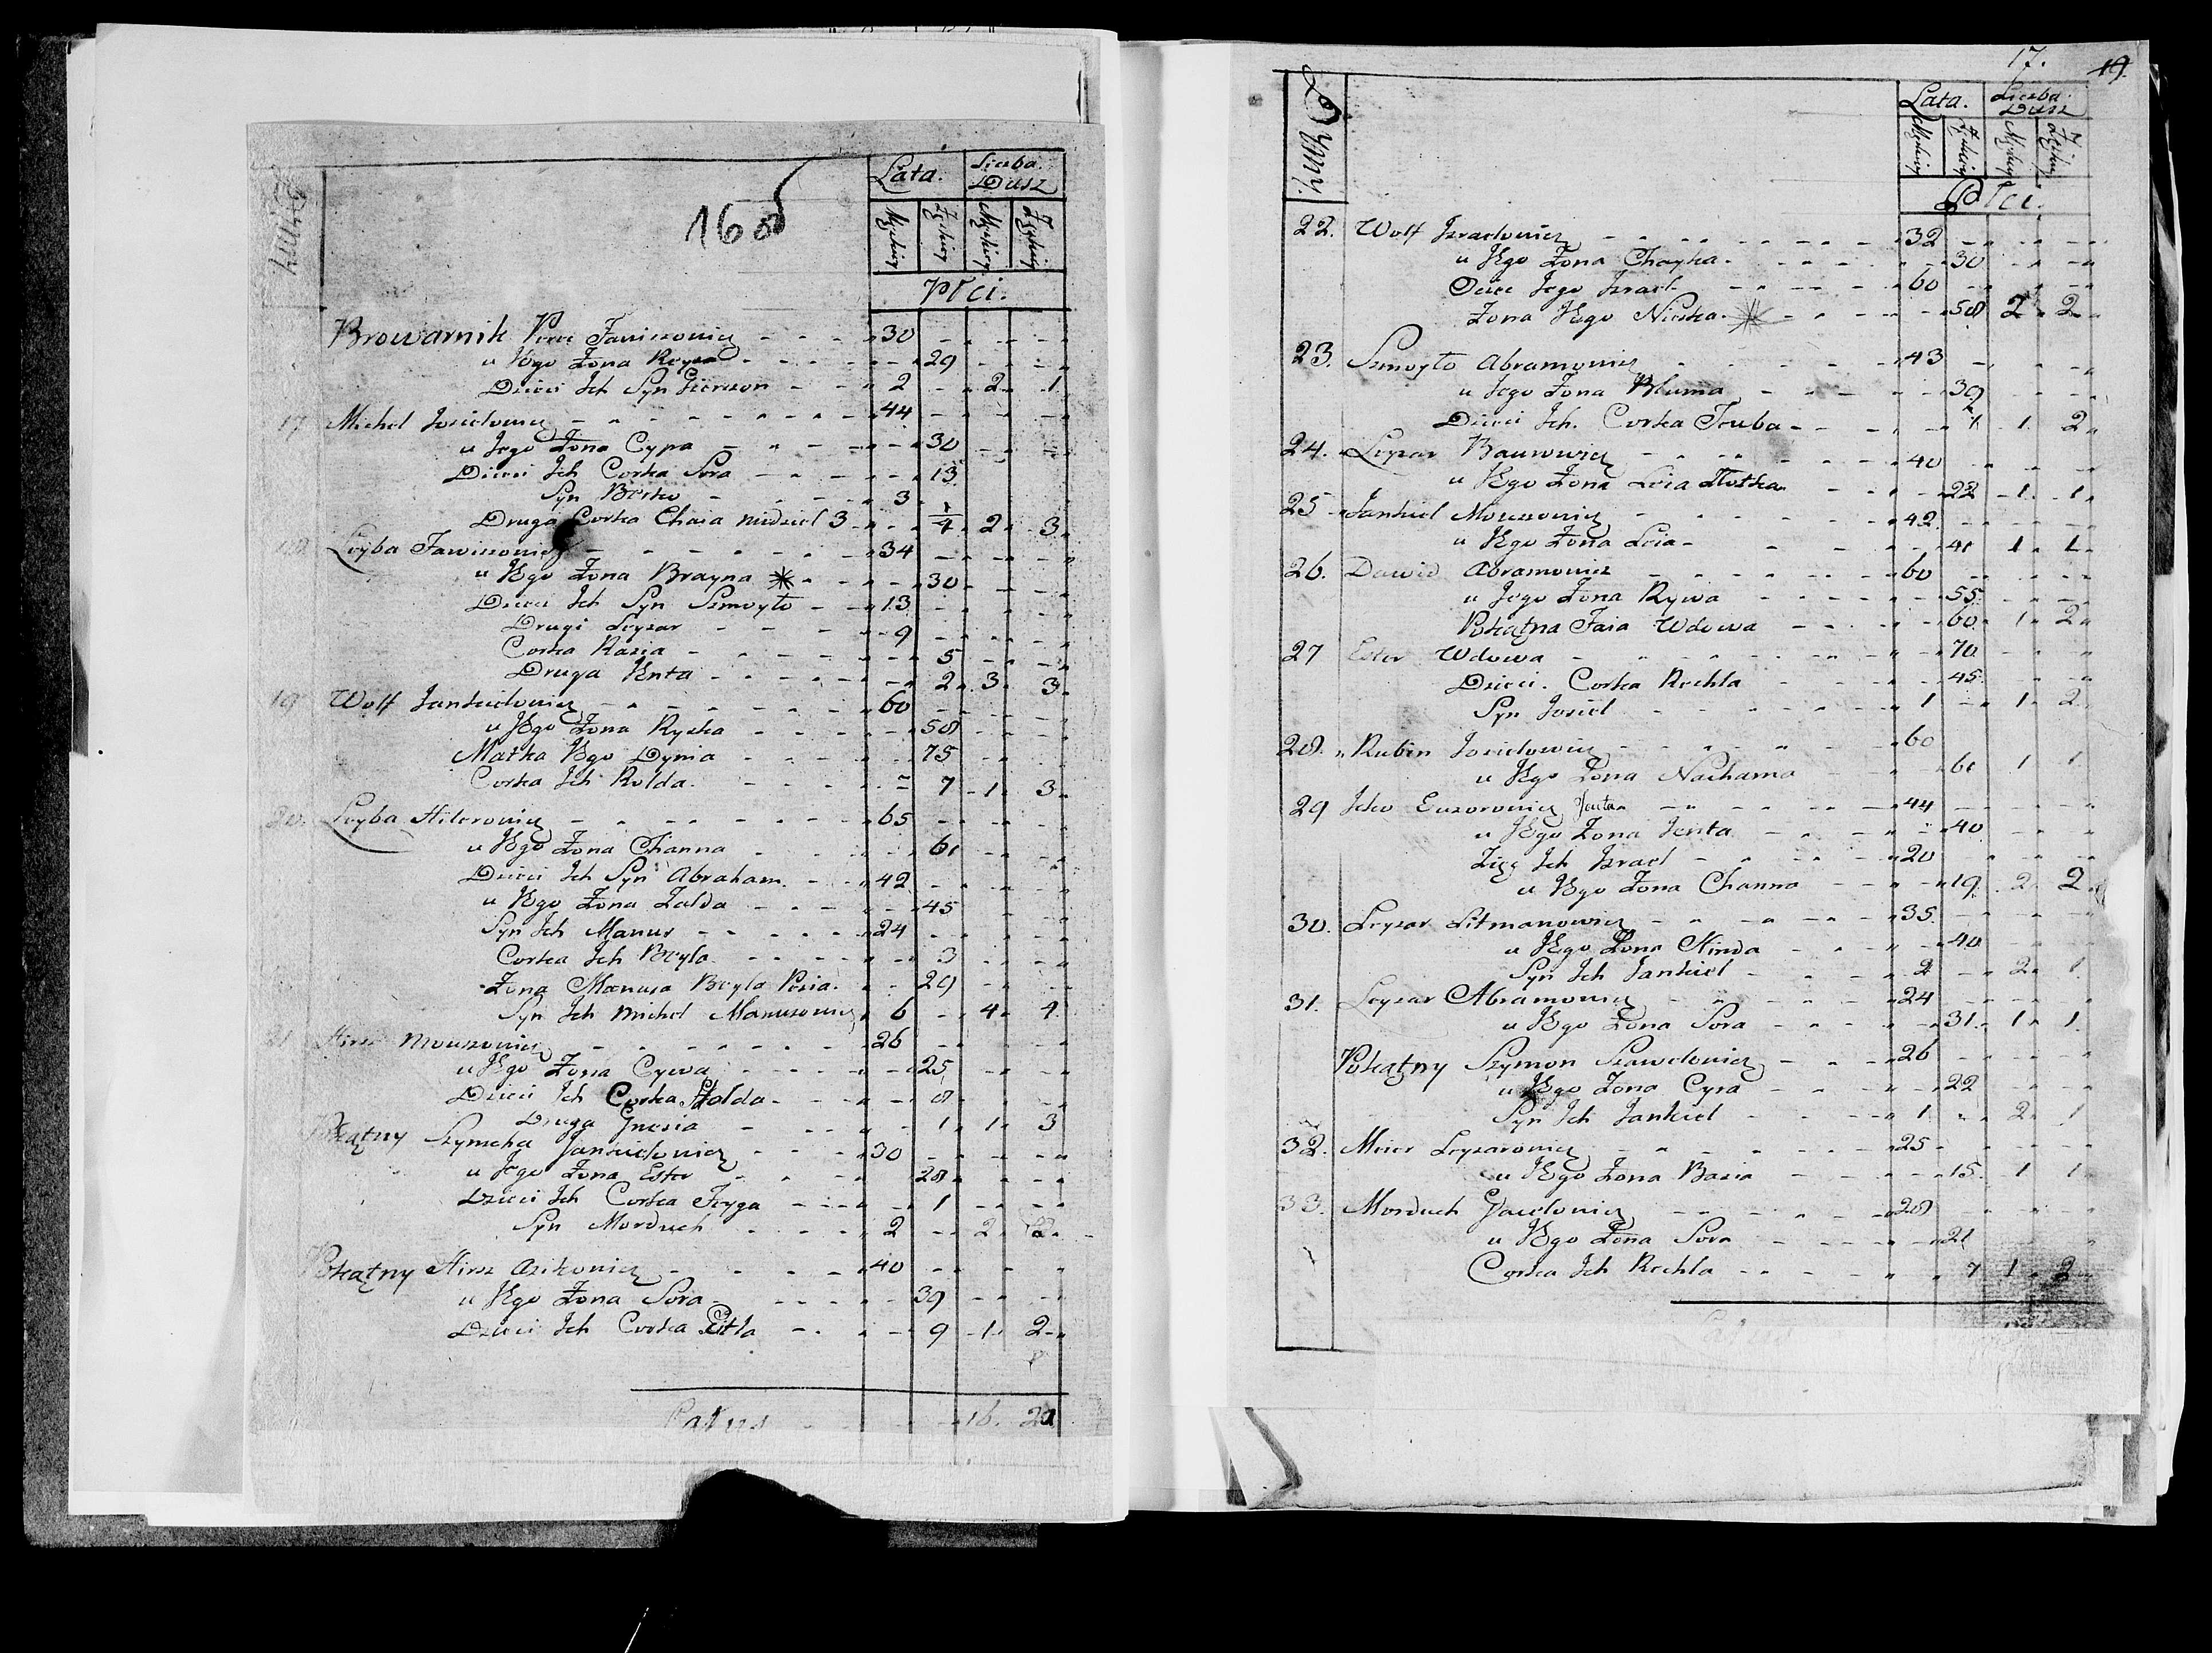 Dymy
Lata. Liczba Dusz
Męskiey Żeńskiey Męskiey Żeńskiey
Płci.
160
Browarnik Jawiszowicz - 30
u Jego Żona Reyza - 29
Dzieci Ich Syn Gierszon - 2 - 2 - 1
17 Michel Josielowicz - 44
u Jego Żona Cypa - 30
Dzieci Ich Corka Sora - 13
Syn Berko - 3
Druga Corka Chaia niedziel 3 - 1/4 2 3
18 Leyba Jawiszowicz - 34
u Jego Żona Brayna - 30
Dzieci Ich Syn Szmoyło - 13
Drugi Leyzar - 9
Corka Kasia - 5
Druga Jenta - 2 3 3
19 Wolf Jankielowicz - 60
u Jego Żona Ryska - 58
Matka Jego Dynia - 75
Corka Ich Rolda - 7 1 3
20. Leyba Hilerowicz - 65
u Jego Żona Channa - 61
Dzieci Ich Syn Abraham - 42
u Jego Żona Zalda - 45
Syn Ich Manus - 24
Corka Ich Beyla - 3
Żona Manusa Beyla Pesia - 29
Syn Ich Michel Manusowicz 6 - 4 4
21 Hirsz Mouszowicz - 26
u Jego Żona Cywa - 25
Dzieci Ich Corka Holda - 8
Druga Gnesia - 1 1 3
Pokątny Szymcha Jankielowicz - 30
u Jego Żona Ester 28
Dzieci Ich Corka Feyga - 1
Syn Morduch - 2 - 2 2
Pokątny Hirsz Aszkowicz - 40
u Jego Żona Sora - 39
Dzieci Ich Corka Gitla - 9 1 2
Latus - 16. 24
17. 19.
Dymy
Lata. Liczba Dusz
Męskiey Żeńskiey Męskiey Żeńskiey
Płci.
22. Wolf Izraelowicz - 32
u Jego Żona Chayka - 30
Ociec Jego Izrael - 60
Żona Jego Nieska - 58 2 2
23. Szmoyło Abramowicz - 43
u Jego Żona Bluma - 39
Dzieci Ich. Corka Teuba - 1 1 2
24. Leyzar - 40
u Jego Żona Leia - 22 1 1
25 Jankiel Mouszowicz - 42
u Jego Żona Leia - 41 1 1
26. Dawid Abramowicz - 60
u Jego Żona Rywa - 55
Pokątna Faia Wdowa - 60 1 2
27 Ester Wdowa - 70
Dzieci. Corka Rochla - 45
Syn Josiel - 1 - 1 2
28. Rubin Josielowicz - 60
u Jego Żona Nachama 61 1 1
29 Icko Euzorowicz Jenta - 44
u Jego Żona Jenta - 40
Zięć Ich Izrael - 20
u Jego Żona Channa - 19 2 2
30. Leyzar Litmanowicz - 35
u Jego Żona Hinda - 40
Syn Ich Jankiel - 2 - 2 1
31. Leyzar Abramowicz - 24
u Jego Żona Sora - 31 1 1
Pokątny Szymon Szawelowicz - 26
u Jego Żona Cyra - 22
Syn Ich Jankiel - 1 - 2 1
32. Meier Leyzarowicz - 25
u Jego Żona Basia - 15 1 1
33. Morduch - 28
u Jego Żona Sora - 21
Corka Ich Rochla - 7 1 2